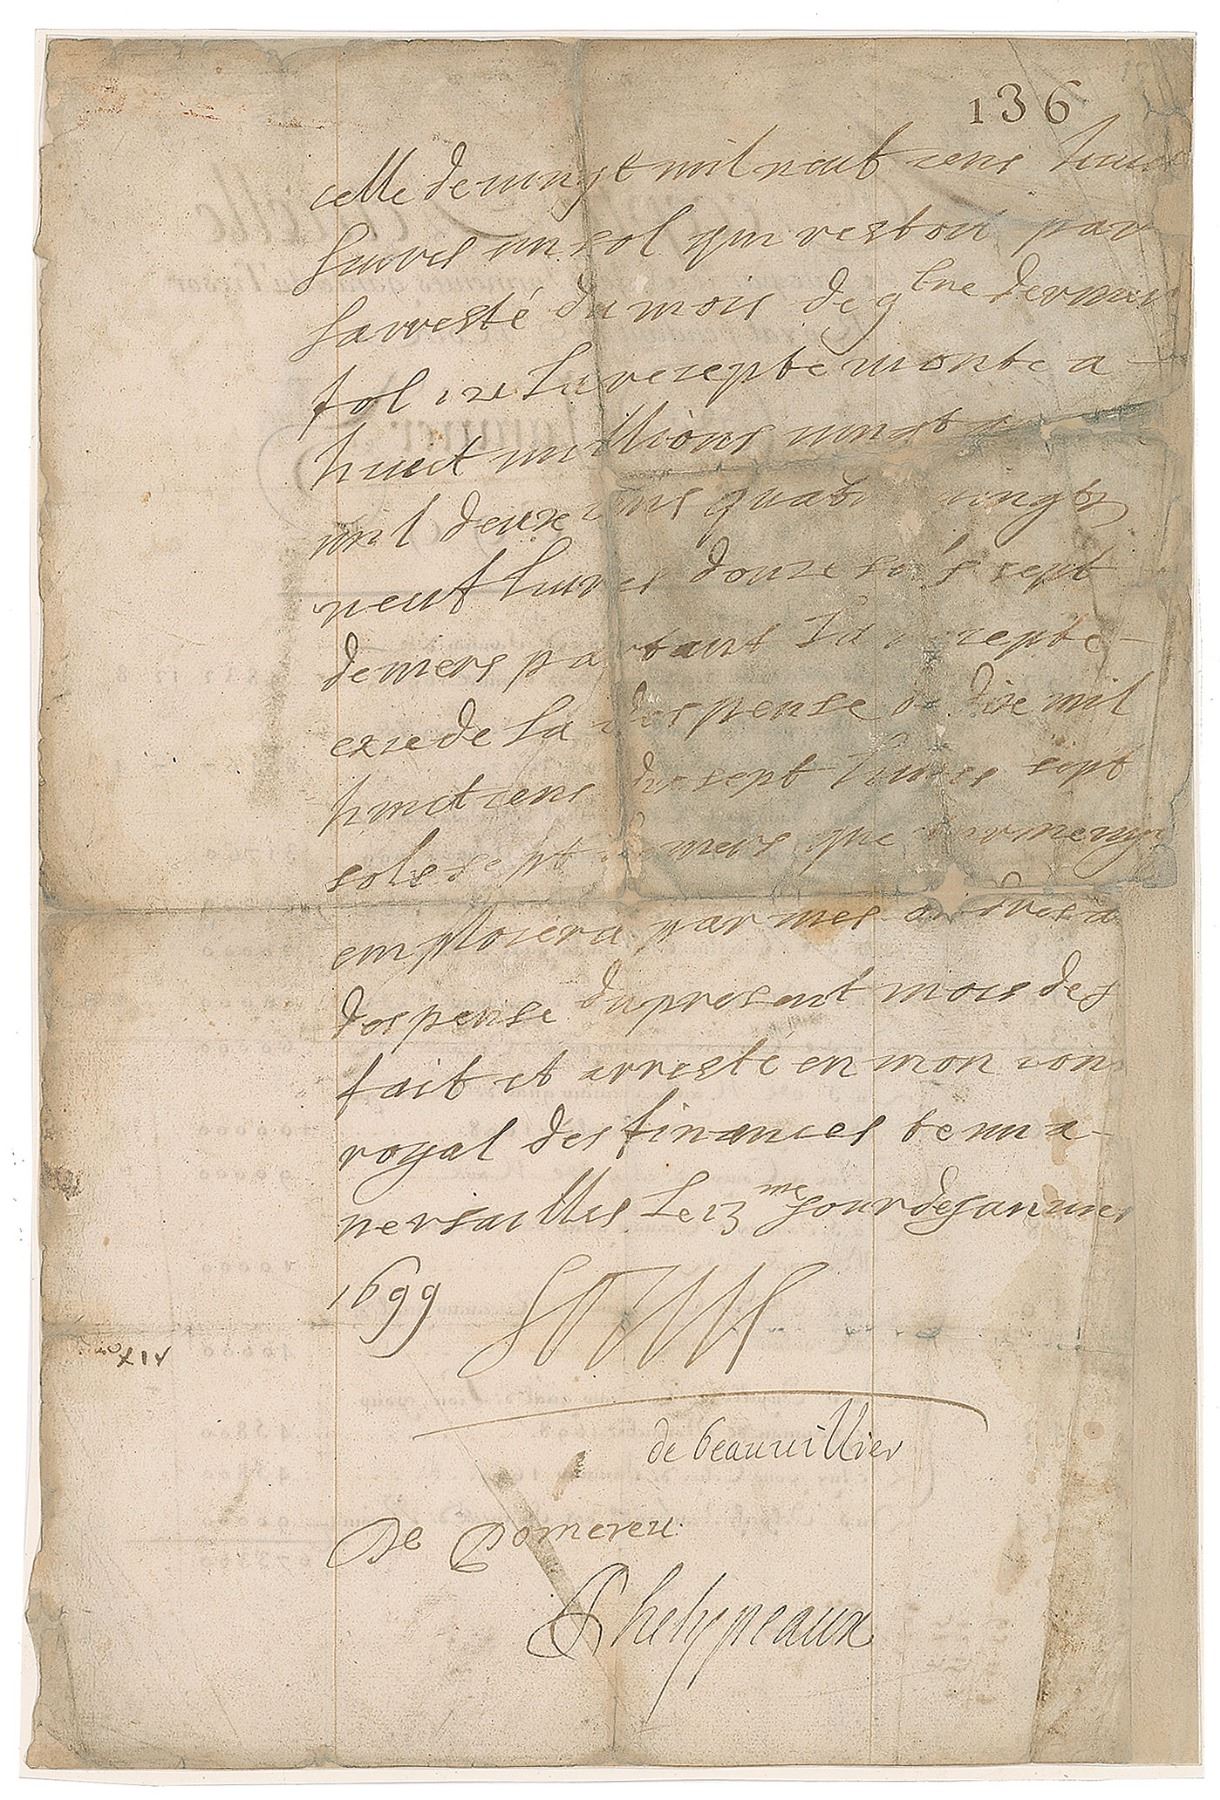 136
celle de vingt mil neuf cens huict
livres un sol qui restoit par
larresté du mois de 9bre dernier
fol 121 la recepte monte a
huict millions vingt
mil deux cens quatre vingtz
neuf livres douze solz sept
deniers partant la recepte
excede la despense de dix mil
huict cens dix sept livres sept
sols sept deniers que
emploiera par mes ordres a
despense du present mois de J
fait et arresté en mon con
royal des finances tenu a
versailles le 23me jour de Janvier
1699 Louis
de beauvillier
De Pomereu
Phelypeaux
XIV